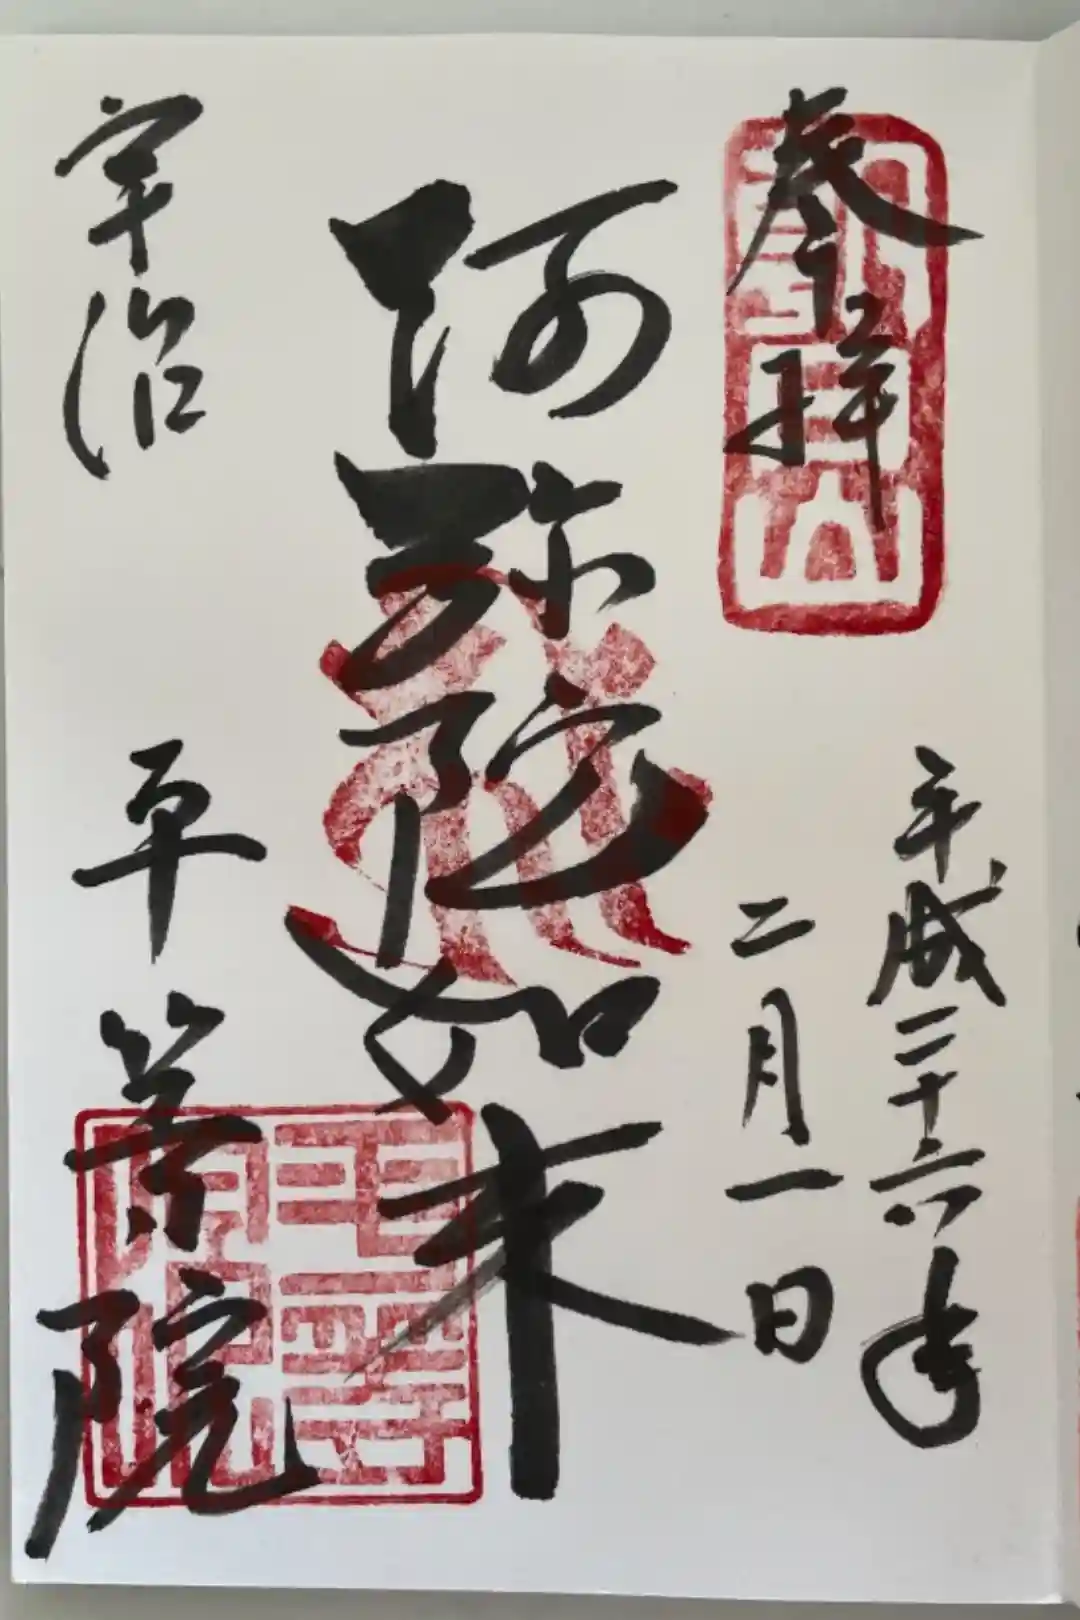 奉拝
朝日山
平成二十六年
二月一日
阿弥陀如来
宇治
平等院